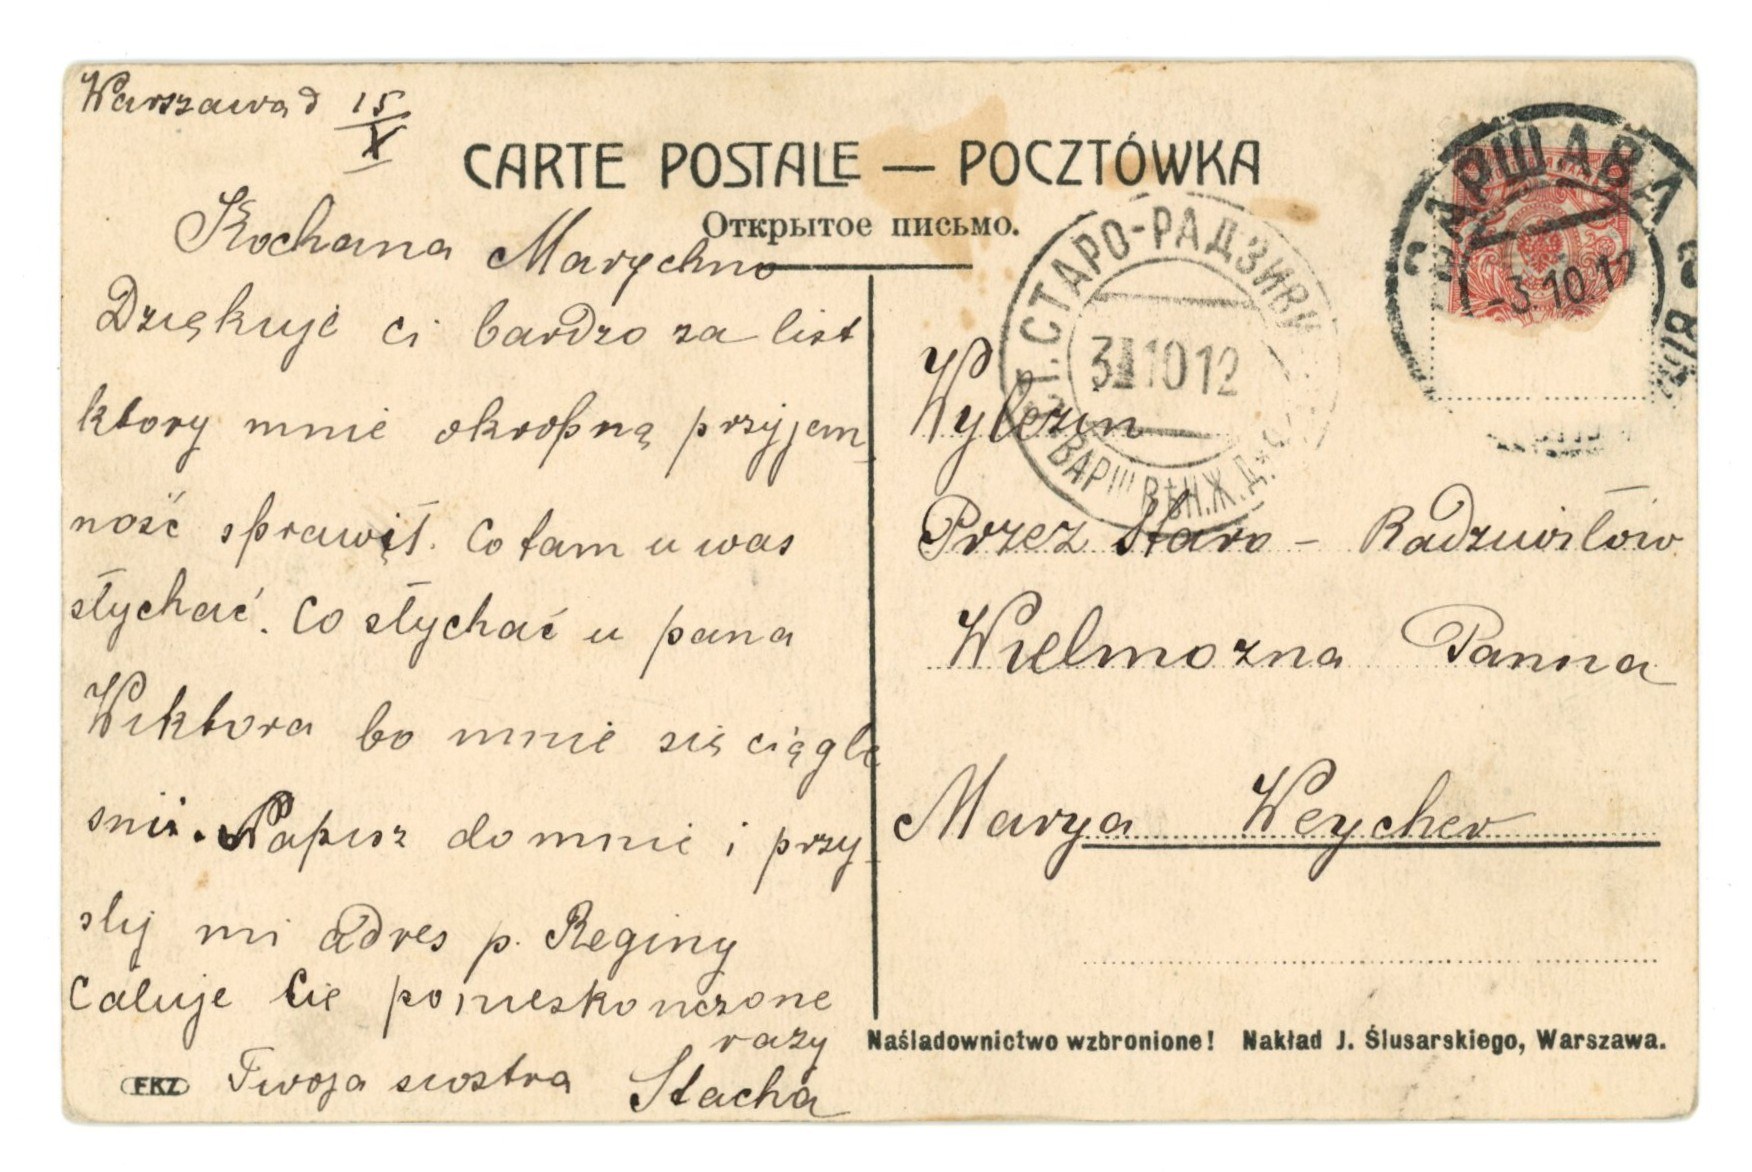 Warszawa d 15/X
CARTE POSTALE — POCZTÓWKA
Открытое письмо.
Kochana Marychno
Dziękuję ci bardzo za list
ktory mnie okropną przyjem-
ność sprawił. Co tam u was
słychać. Co słychać u pana
Wiktora bo mnie się ciągle
śni. Napisz do mnie i przy-
slij mi adres p. Reginy
Całuje Cię ponieskończone
razy
Twoja siostra Stacha
FKZ
ВАРШАВА
-3.10.12
СТ. СТАРО-РАДЗИВИ
3 10 12
ВАРШ. ВѢН. Ж. Д.
Wylezin
Przez Staro - Radziwiłów
Wielmozna Panna
Marya Weycher
Naśladownictwo wzbronione! Nakład J. Ślusarskiego, Warszawa.